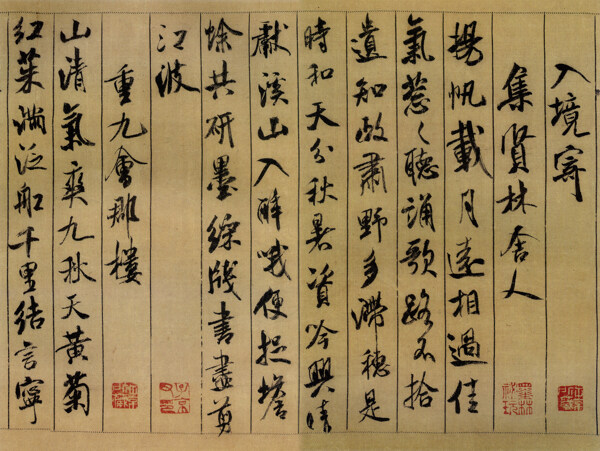 入境寄
集賢林舍人
揚帆載月遠相過佳
氣葱〻聽誦歌路不拾
遺知政肅野多滯穗是
時和天分秋暑資吟興晴
獻溪山入醉哦便捉蟾
蜍共研墨綵牋書盡剪
江波
重九會郡樓
山清氣爽九秋天黃菊
紅茱滿泛船千里結言寧